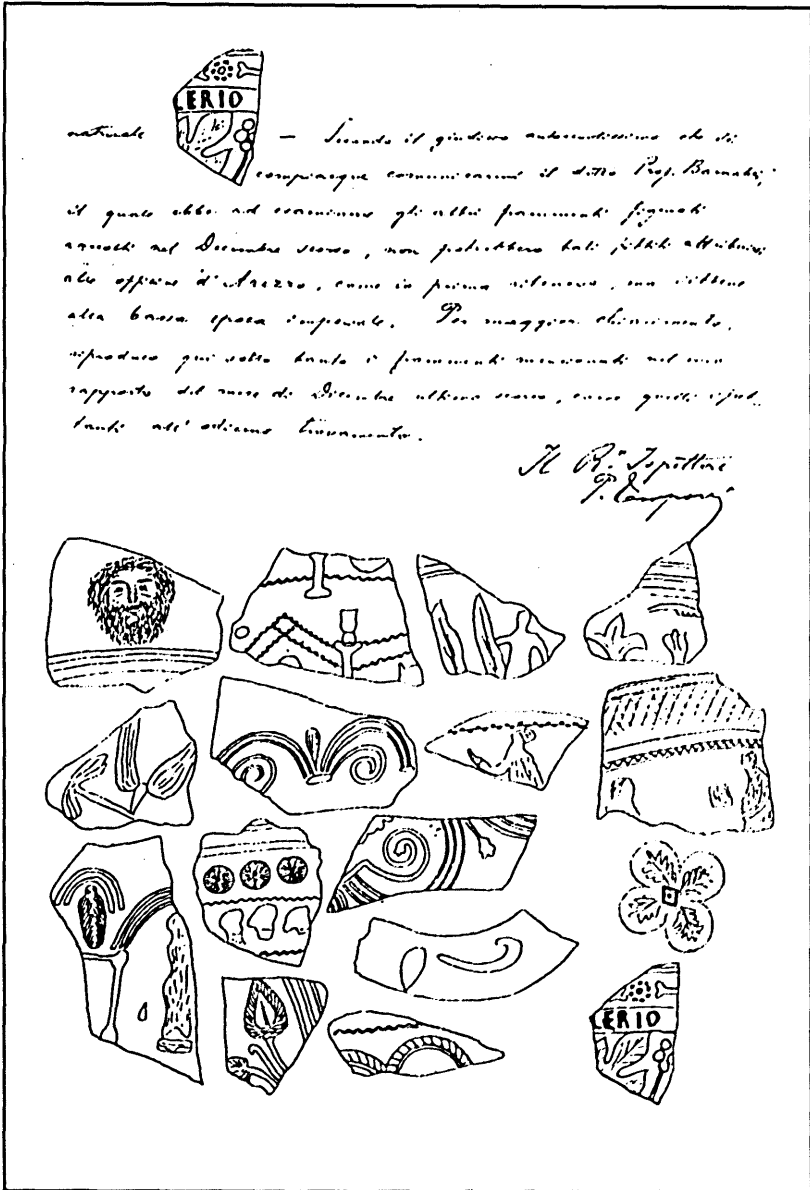 LERIO
naturale — Secondo il giudizio autorevolissimo che si
compiacque comunicarmi il ditto Prof. Barnabei,
il quale ebbe ad esaminare gli altri frammenti figurati
raccolti nel Dicembre scorso, non potrebbero tali fittili attribuirsi
alle officine d'Arezzo, come in prima ritenevo, ma sibbene
alla bassa epoca imperiale. Per maggior chiarimento,
riproduco qui sotto tanto i frammenti menzionati nel mio
rapporto del mese di Dicembre ultimo scorso, come quelli spet-
tanti all'odierno trovamento.
Il R.º Ispettore
P.
LERIO